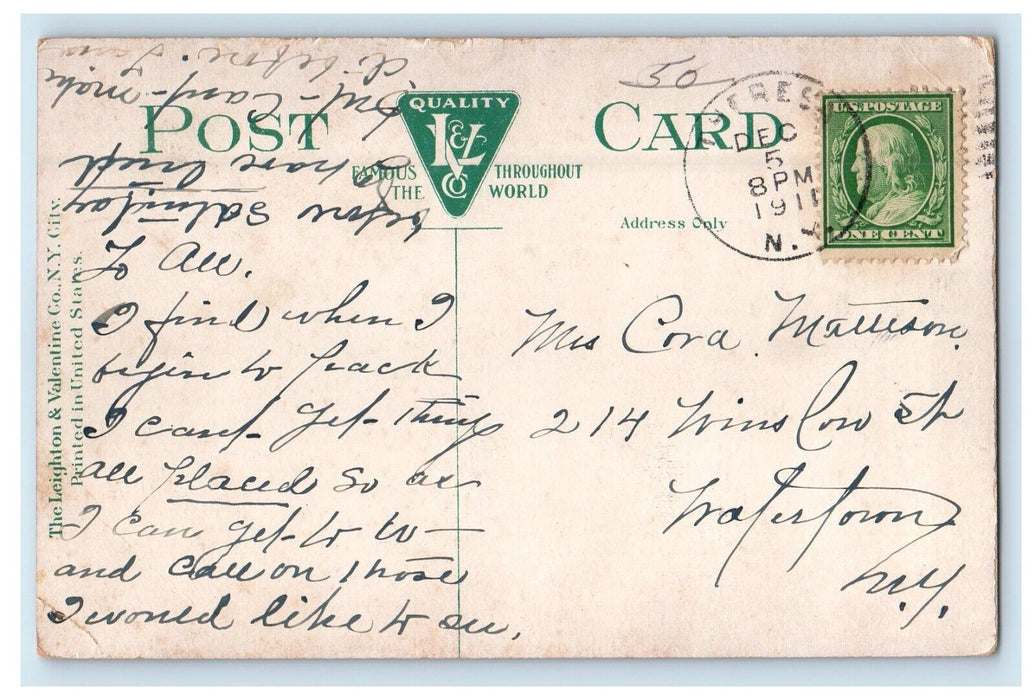 50
POST CARD
QUALITY
L & V
CO
FAMOUS THROUGHOUT
THE WORLD
Address Only
DEC
5
8 PM
1911
N.Y.
U.S. POSTAGE
ONE CENT
The Leighton & Valentine Co., N.Y. City.
Printed in United States.
To All.
I find when I
begin to pack
I cant get things
all placed so as
I can get to to
and call on those
I would like to see,
before Saturday
Mrs Cora Matteson
214 Winslow St
Watertown
N.Y.